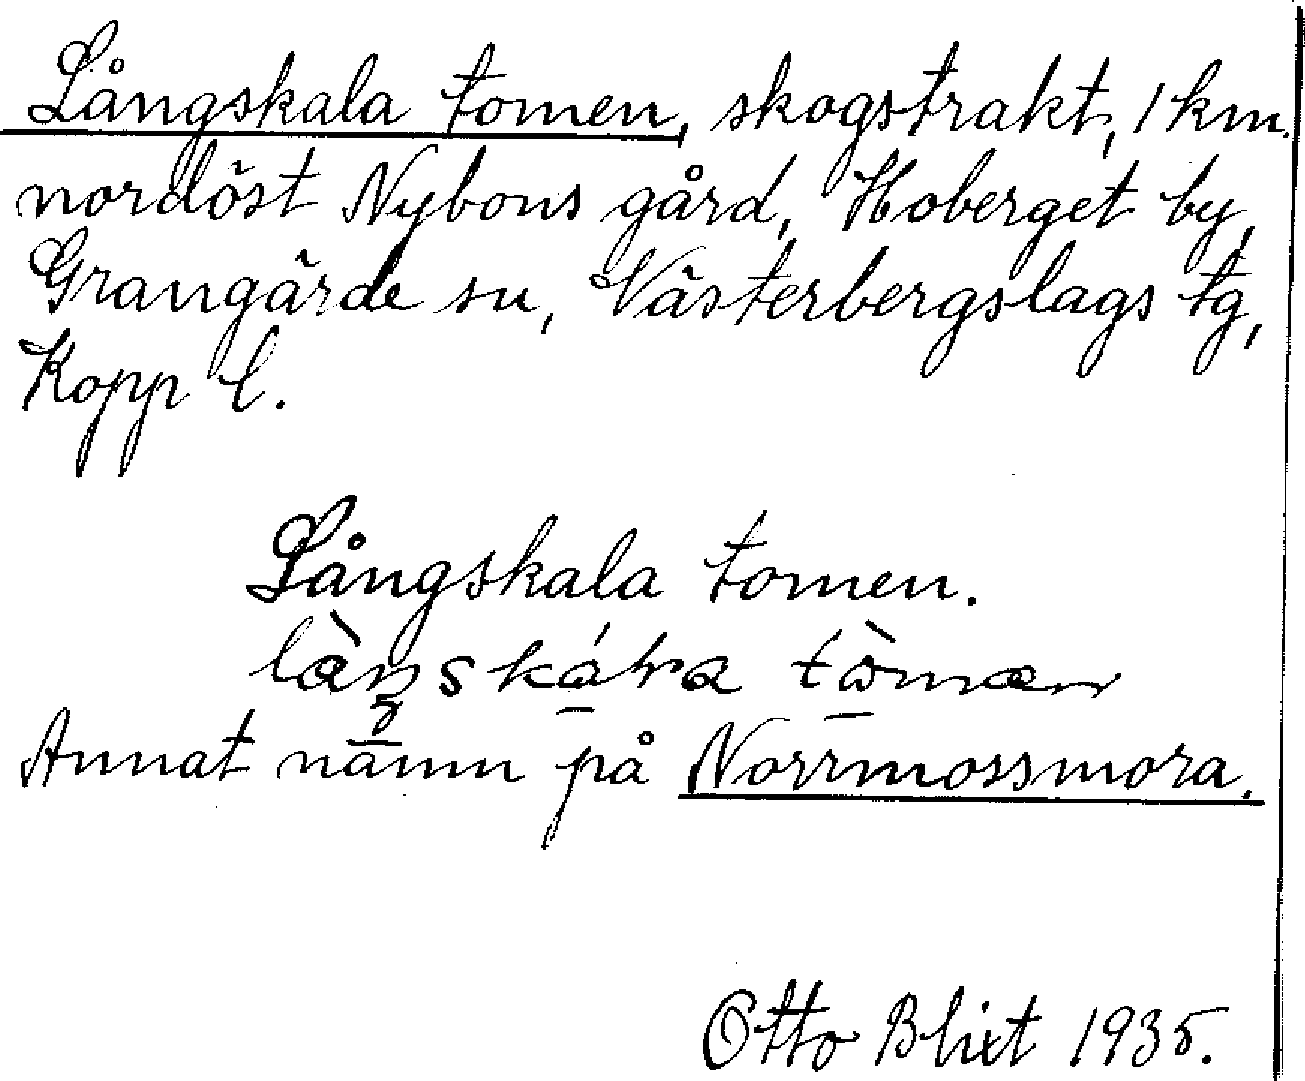 Långskala tomen, skogstrakt, 1 km.
nordöst Nybons gård, Hoberget by,
Grangärde sn, Västerbergslags tg,
Kopp l.
Långskala tomen.
Annat nämn på Norrmossmora.
Otto Blixt 1935.